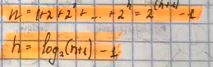 n = 1+2+2²+ ... + 2ʰ = 2⁽ʰ⁺¹⁾ - 1
h = log₂(n+1) - 1